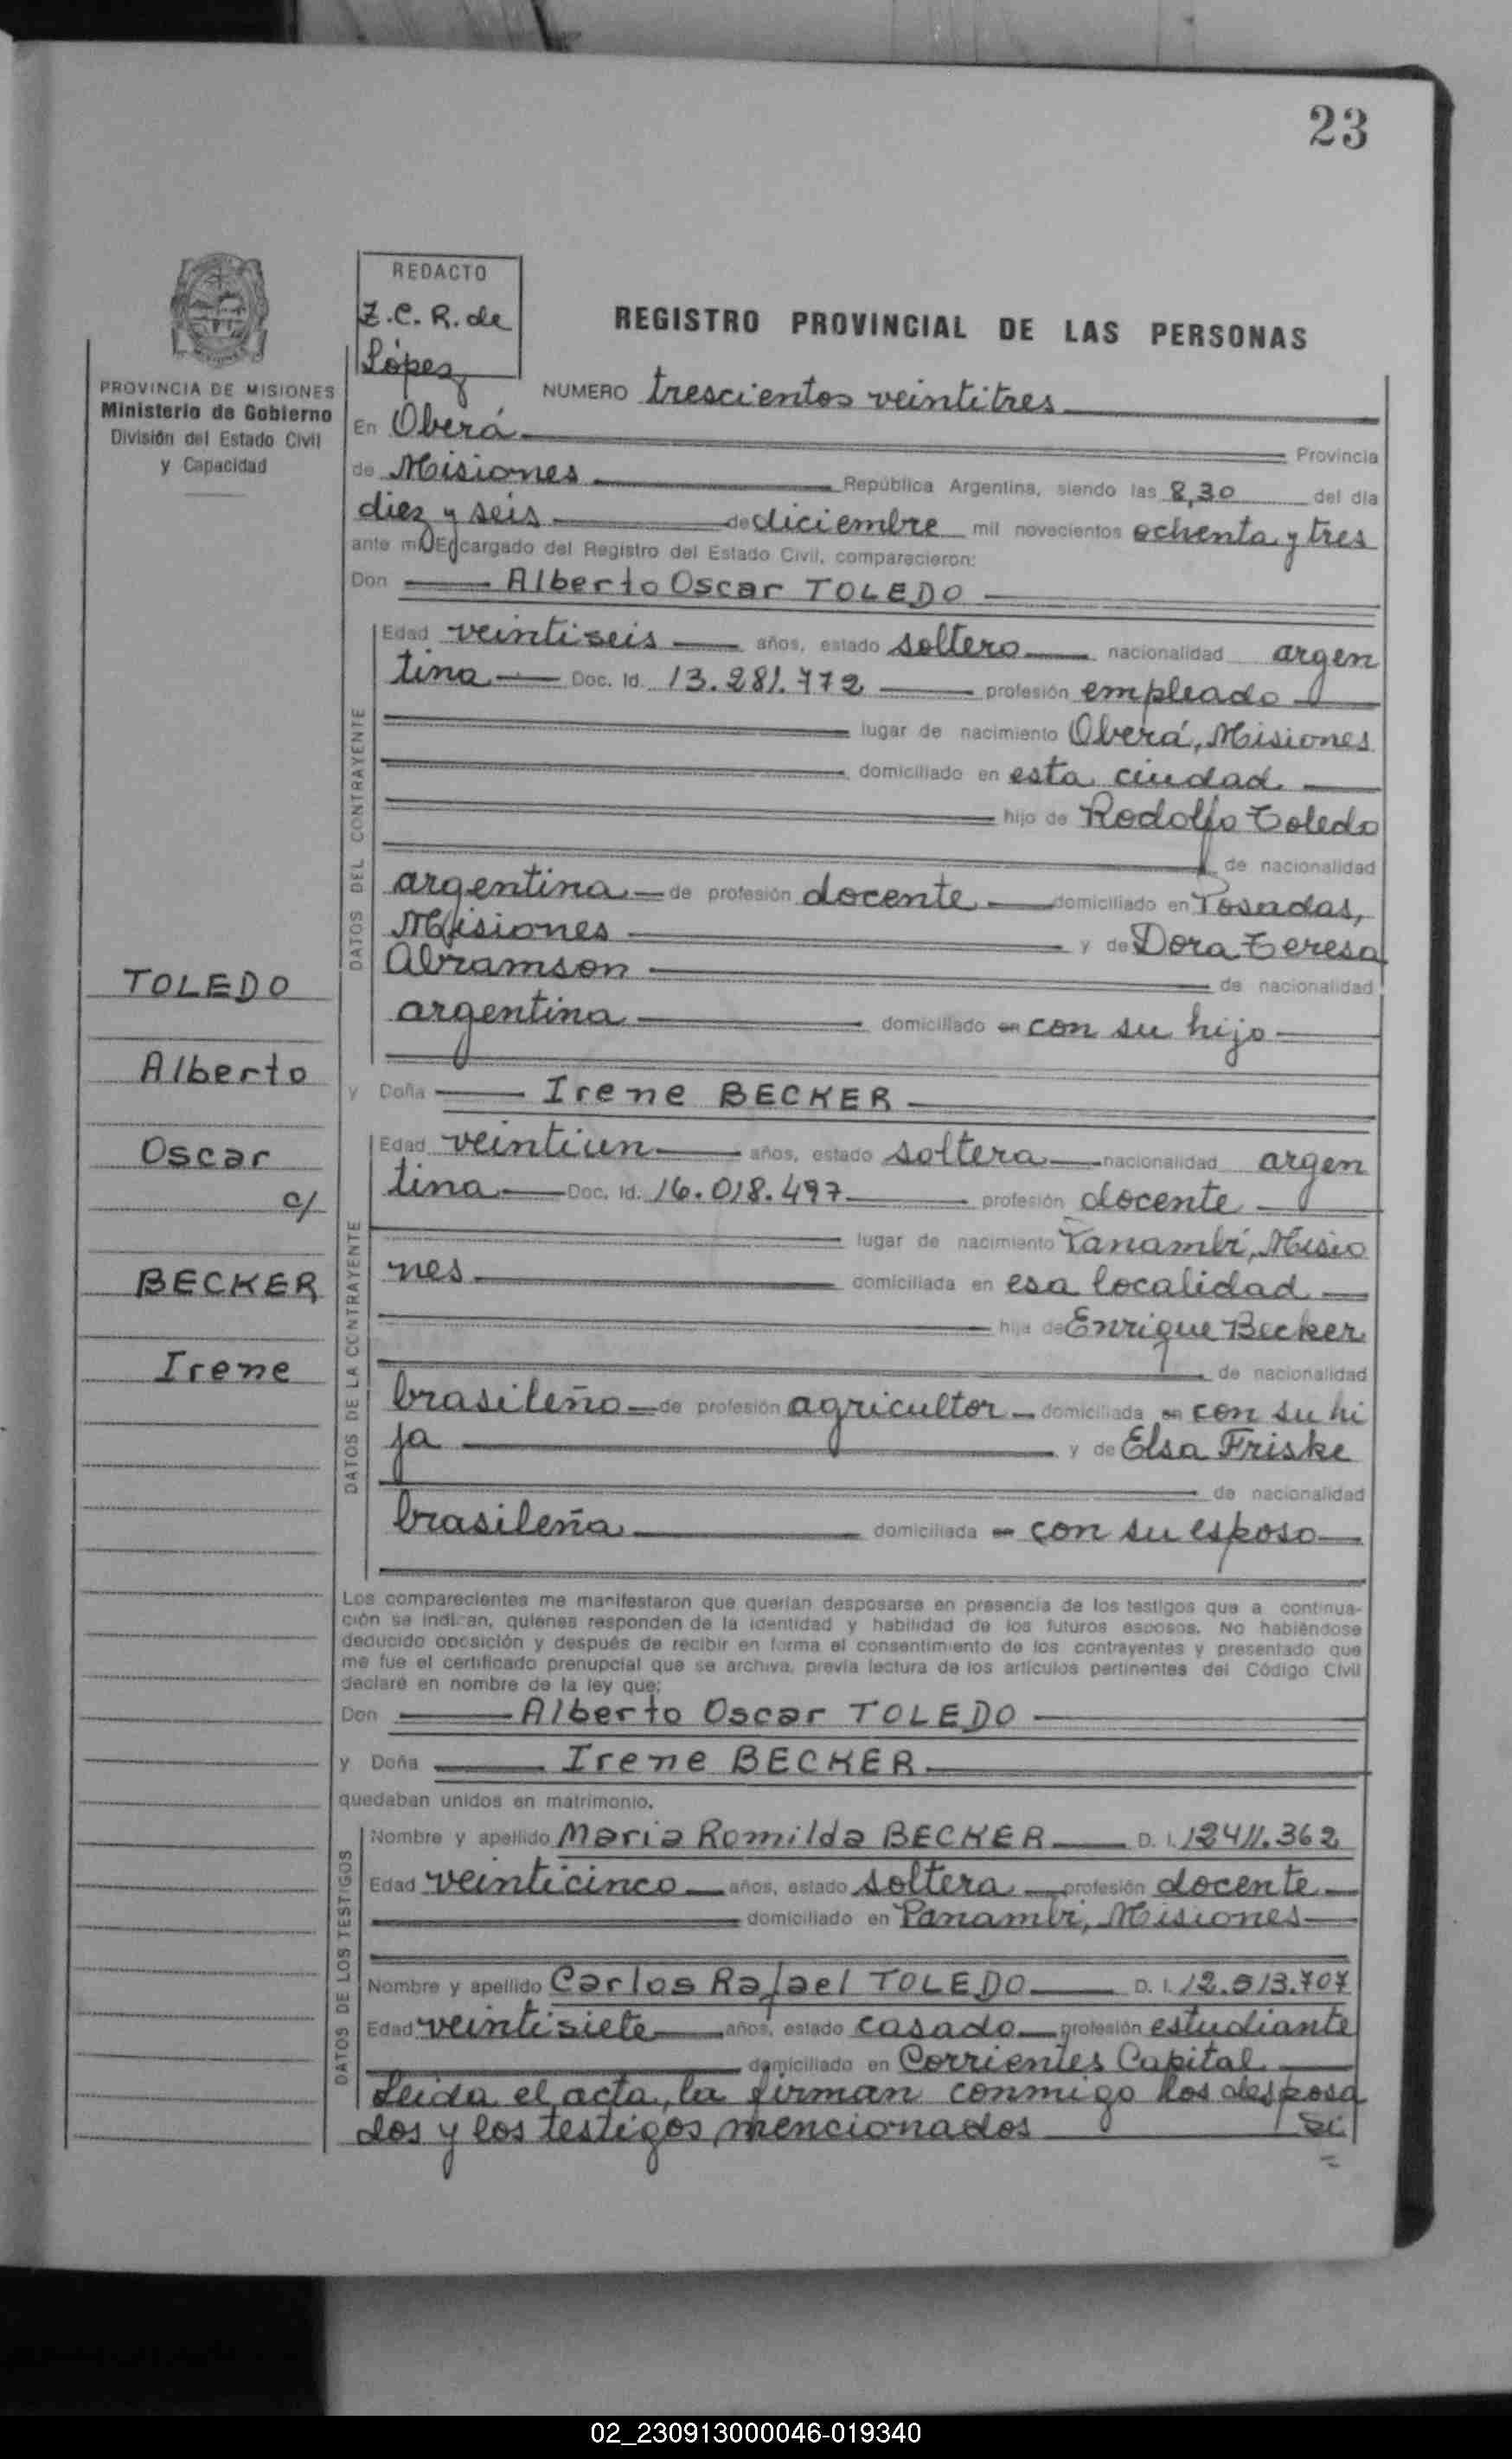 23
REDACTO
Z.C.R. de
López
REGISTRO PROVINCIAL DE LAS PERSONAS
PROVINCIA DE MISIONES
Ministerio de Gobierno
División del Estado Civil
y Capacidad
NUMERO trescientos veintitres
En Oberá
Provincia
de Misiones República Argentina, siendo las 8,30 del día
diez y seis de diciembre mil novecientos ochenta y tres
ante mí Encargado del Registro del Estado Civil, comparecieron:
Don Alberto Oscar TOLEDO
DATOS DEL CONTRAYENTE
Edad veintiseis años, estado soltero nacionalidad argen
tina Doc. Id. 13.281.772 profesión empleado
lugar de nacimiento Oberá, Misiones
domiciliado en esta ciudad
hijo de Rodolfo Toledo
de nacionalidad
argentina de profesión docente domiciliado en Posadas,
Misiones y de Dora Teresa
Abramson de nacionalidad
argentina domiciliado en con su hijo
y Doña Irene BECKER
DATOS DE LA CONTRAYENTE
Edad veintiun años, estado soltera nacionalidad argen
tina Doc. Id. 16.018.497 profesión docente
lugar de nacimiento Panambí, Misio
nes domiciliada en esa localidad
hija de Enrique Becker
de nacionalidad
brasileño de profesión agricultor domiciliada en con su hi
ja y de Elsa Friske
de nacionalidad
brasileña domiciliada en con su esposo
TOLEDO
Alberto
Oscar
c/
BECKER
Irene
Los comparecientes me manifestaron que querían desposarse en presencia de los testigos que a continua-
ción se indican, quienes responden de la identidad y habilidad de los futuros esposos. No habiéndose
deducido oposición y después de recibir en forma el consentimiento de los contrayentes y presentado que
me fue el certificado prenupcial que se archiva, previa lectura de los artículos pertinentes del Código Civil
declaré en nombre de la ley que:
Don Alberto Oscar TOLEDO
y Doña Irene BECKER
quedaban unidos en matrimonio.
DATOS DE LOS TESTIGOS
Nombre y apellido Maria Romilda BECKER D. I. 12411.362
Edad veinticinco años, estado soltera profesión docente
domiciliado en Panambí, Misiones
Nombre y apellido Carlos Rafael TOLEDO D. I. 12.513.707
Edad veintisiete años, estado casado profesión estudiante
domiciliado en Corrientes Capital
Leida el acta, la firman conmigo los desposa
dos y los testigos mencionados si
02_230913000046-019340